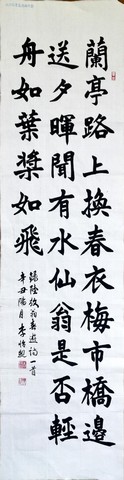 蘭亭路上換春衣梅市橋邊
送夕暉聞有水仙翁是否輕
舟如葉槳如飛
錄陸放翁春遊詩一首
辛丑陽月李